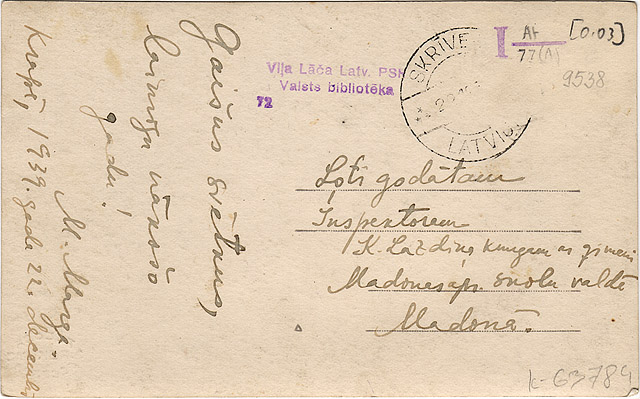 Gaišus svētkus,
laimīgu nākošo
gadu!
M.
1939. gada 22. decembrī
Viļa Lāča Latv. PSR
Valsts bibliotēka
72
SKRĪVE
LATVIJ
I AF
77(A)
[0.03]
9538
Ļoti godātam
Inspektoram
K. Lazdiņa kungam ar ģimeni
Madonas apr. skolu valdē
Madonā.
k-63784